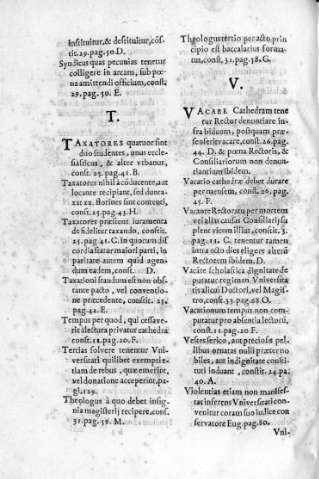 instituitur, & destituitur, cōs-
tit. 29. pag. 50. D.
Syndicus quas pecunias tenetur
colligere in arcam, sub pœ-
na amittendi officium, const.
29. pag. 50. E.
T.
TAXATORES quatuor sint
duo studentes, unus eccle-
siasticus, & alter vrbanus,
const. 25. pag. 41. B.
Taxatores nihil acōducente, aut
locante recipiant, sed duntaxat
xx. florines sint contenti,
const. 25. pag. 43. H.
Taxatores præstent iuramentum
de fideliter taxando, constit.
25. pag 41. C. in quorum dis
cordia statur maiori parti, in
paritate autem quid agendum
eadem, const. D.
Taxationi standum est non obstante
pacto, vel conventione
præcedente, constit. 25.
pag. 42. E.
Tempus per quod, qui cessaverit
à lectura privatur cathedra
const. 11. pag. 20. F.
Tertias solvere tenentur Vni-
versitati quilibet exemple-
tiam de rebus, quæ emerint,
vel donatione acceperint, pa-
gi. 129.
Theologus à quo debet insig-
nia magisterij recipere, const.
31. pag. 58. M.
Theologus tertio peracto prin
cipio est baccalarius forma-
tus, const. 31. pag. 58. G.
V.
VACARE Cathedram tene
tur Rector denuntiare infra
biduum, postquam præ-
senserit vacare, const. 26. pag.
44. D. & pœna Rectoris, &
Consiliariorum non denun-
tiantium ibidem.
Vacatio cathedræ debet durare
per mensem, const. 26. pag.
45. F.
Vacante Rectoratu per mortem
vel aliàs caucus Consiliarij sup-
plent vicem illius, constit. 3.
pag. 12. C. tenentur tamen
intra octo dies eligere alterũ
Rectorem ibidem. D.
Vacante scholastica dignitate de
putatur regimen Vniversita
tis alicui Doctori, vel Magis-
tro, const. 33. pag. 68. O.
Vacationum tempus non com-
putatur pro absentia lectoris,
const. 11. pag. 20 F.
Vestes serico, aut preciosis pel-
libus ornatas nulli præter no
biles, aut in dignitate consti-
tuti induant, constit. 24. pa.
40. A.
Violentias etiam non manifes-
tas inferens Vniversitati con-
venitur coram suo iudice con
servatore Eug. pag. 80.
Vni-